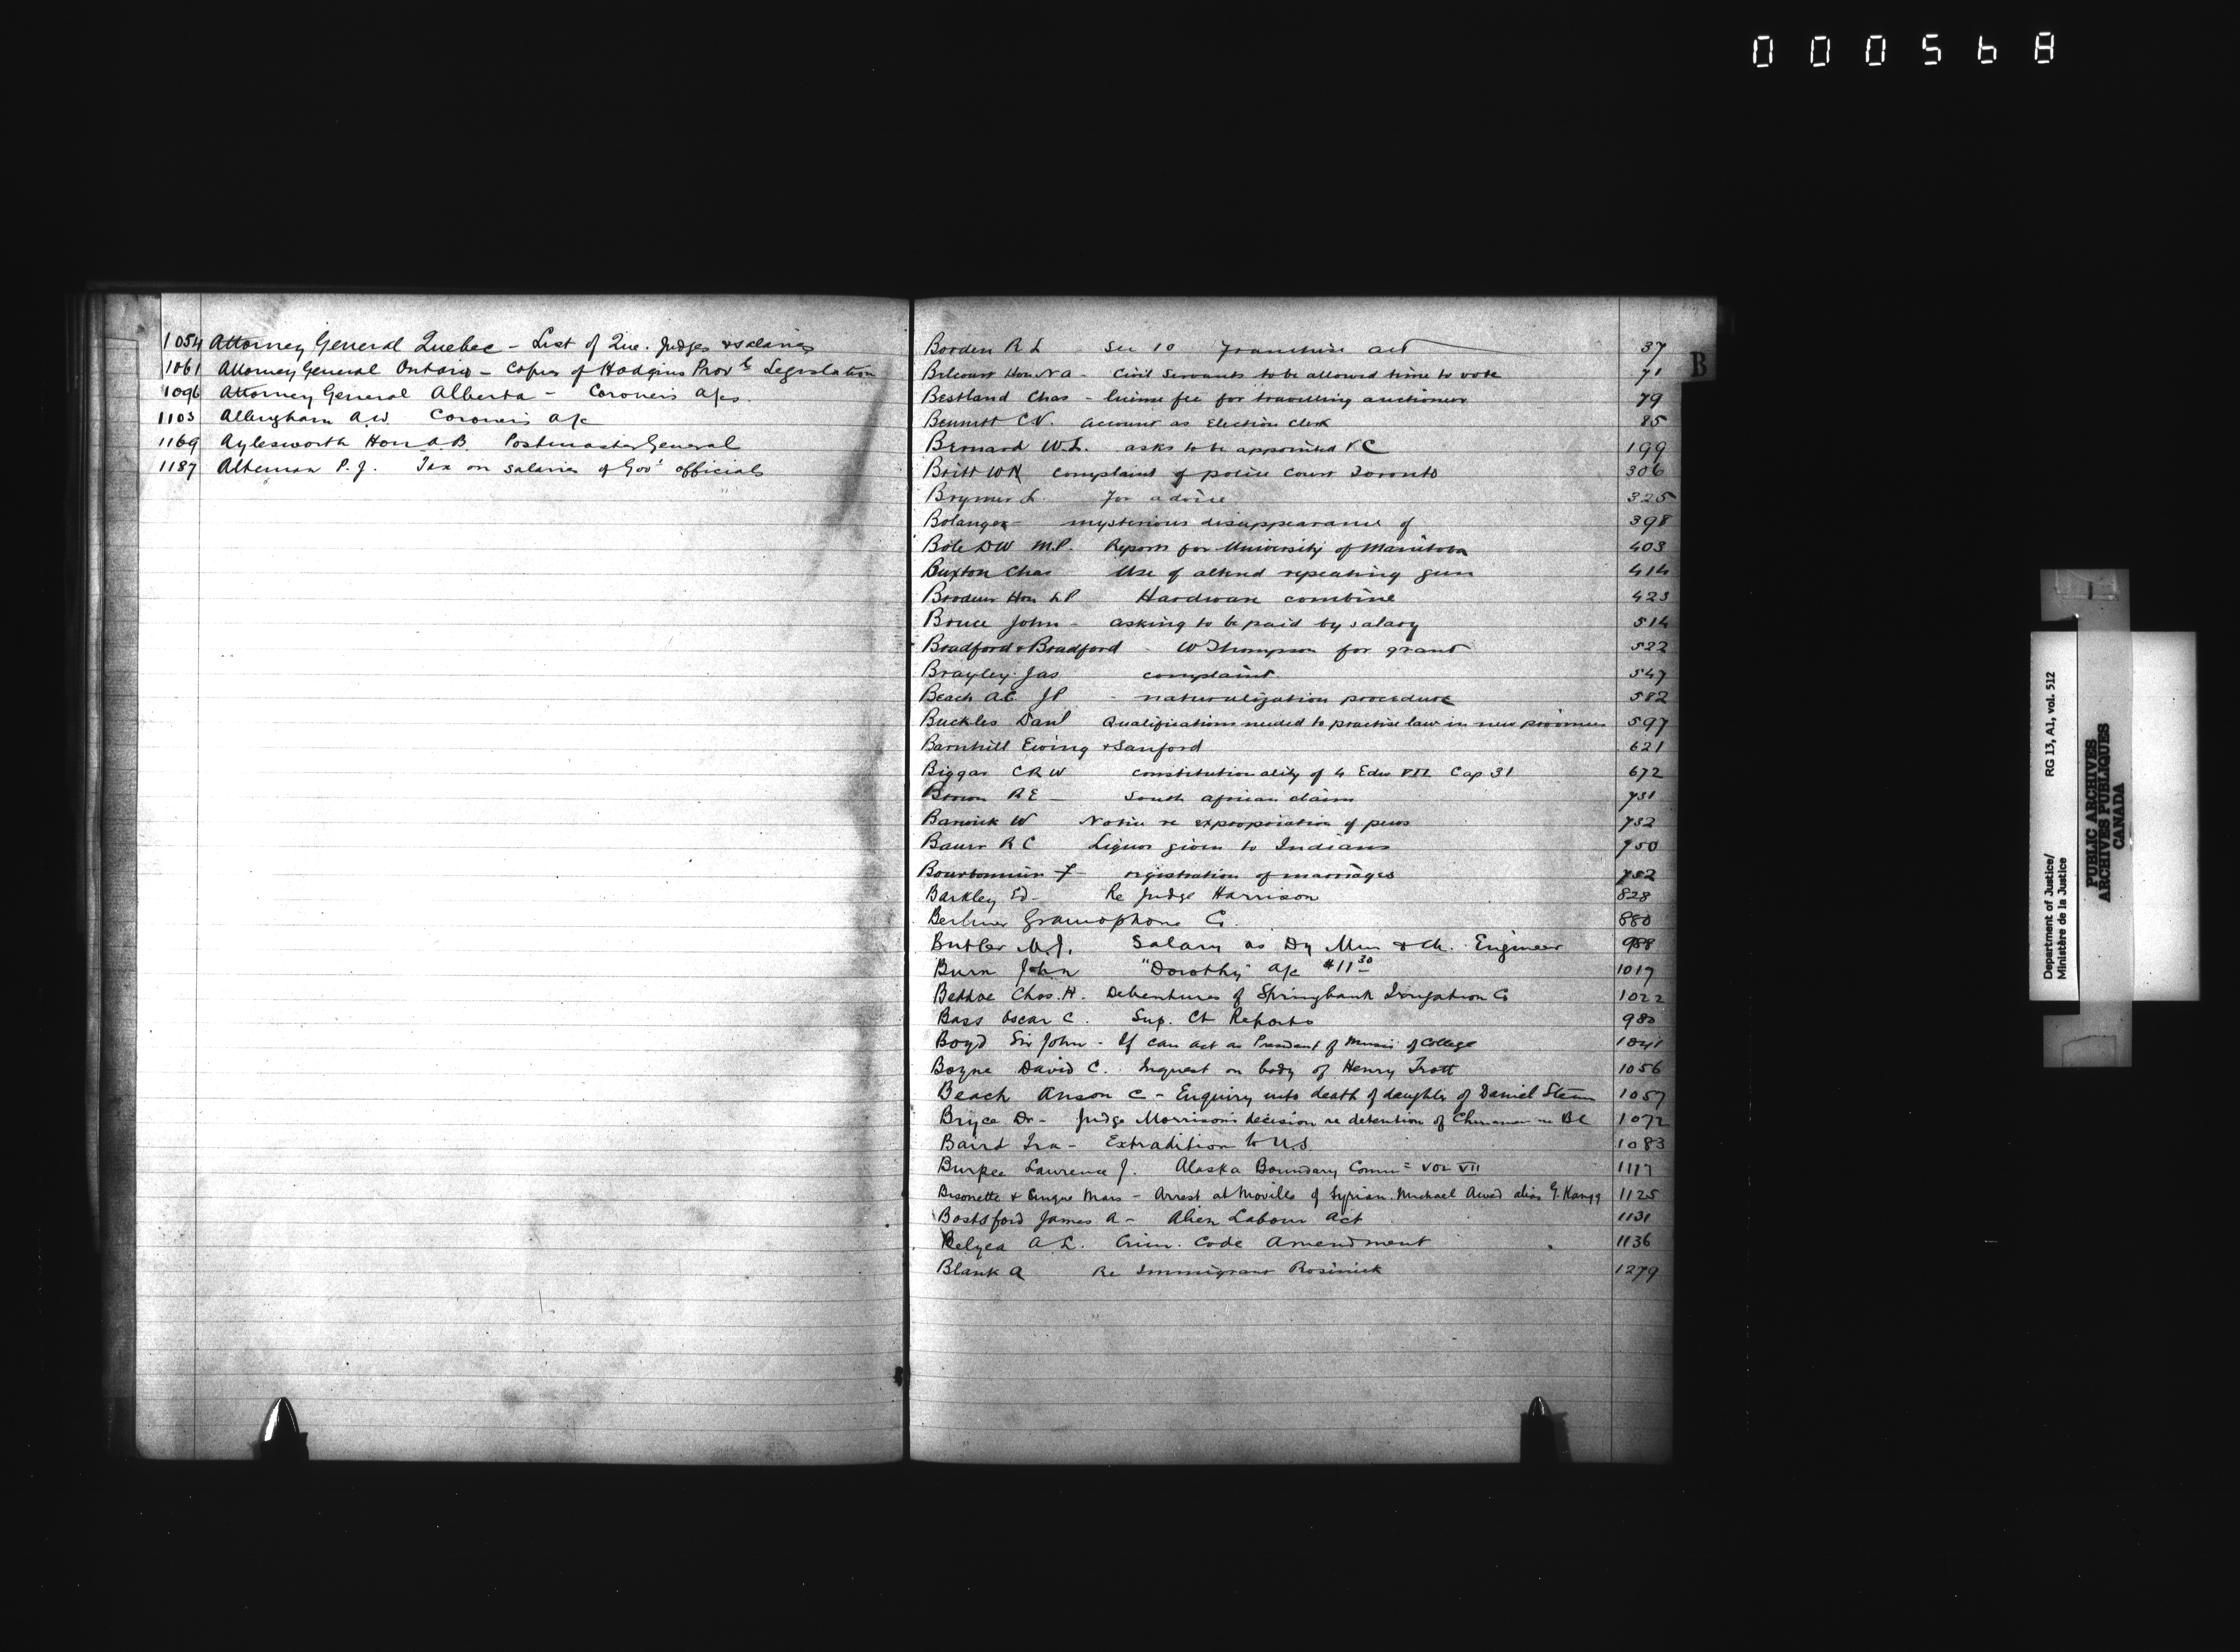 000568
1054 Attorney General Quebec - List of Que. Judges & salaries
1061 Attorney General Ontario - Copies of Hodgins Prov'l Legislation
1096 Attorney General Alberta - Coroners a/cs.
1103 Allingham A.W. Coroners a/c
1169 Aylesworth Hon A.B. Postmaster General
1187 P.J. Tax on salaries of Gov't officials
B
Borden R L Sec 10 Franchise act 37
Belcourt Hon N A - Civil Servants to be allowed time to vote 71
Bestland Chas - license fee for travelling auctioneer 79
Bennett C.V. account as Election Clerk 85
Bernard W.L. asks to be appointed KC 199
Britt WN complaint of police court Toronto 306
Brymer L. For advice 325
Bolanger - mysterious disappearance of 398
Bole DW M.P. Reports for University of Manitoba 403
Buxton Chas Use of altered repeating gun 414
Brodeur Hon LP Hardware combine 423
Bruce John - asking to be paid by salary 514
Bradford & Bradford - W Thompson for grant 522
Brayley Jas complaint 547
Beach A.C. JP - naturalization procedure 582
Buckles Danl Qualifications needed to practise law in new provinces 597
Barnhill Ewing & Sanford 621
Biggar CRW constitutionality of 4 Edw VII Cap 31 672
Brown R E - South african claim 731
Barwick W Notice re expropriation of pews 732
Baur R C Liquor given to Indians 750
Bourbonnier F - registration of marriages 752
Barkley Ed - Re Judge Harrison 828
Berliner Gramophone Co. 880
Butler M.J. Salary as Dy Min & Ch. Engineer 988
Burn John "Dorothy" a/c $11 30 1017
Chas. H. Debentures of Springbank Irrigation Co 1022
Bass Oscar C. Sup. Ct Reports 980
Boyd Sir John - If can act as President of Music of College 1041
Boyne David C. Inquest on body of Henry Trott 1056
Beach Anson C - Enquiry into death of daughter of Daniel 1057
Bryce Dr - Judge Morrison's decision re detention of Chinamen in BC 1072
Baird Ira - Extradition to U.S 1083
Burpee Lawrence J. Alaska Boundary Comm= Vol VII 1117
Bisonette & Mars - Arrest at Moville of Syrian Michael Awad alias G. 1125
Bostsford James A - Alien Labour Act 1131
Belyea A.L. Crim. Code Amendment 1136
Blank A Re Immigrant Rosinick 1279
Department of Justice/ RG 13, A1, vol. 512
Ministère de la Justice
PUBLIC ARCHIVES
ARCHIVES PUBLIQUES
CANADA